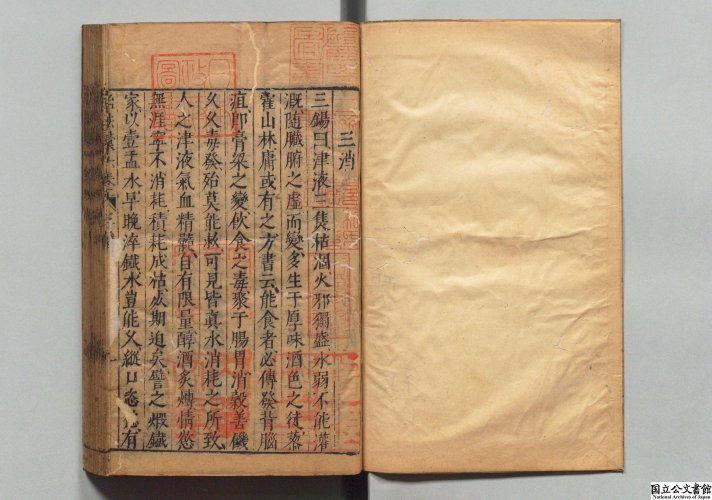 三消
三錫曰津液三焦枯涸火邪獨盛水弱不能灌
溉隨臟腑之虛而變多生于厚味酒色之徒落
藿山林庸或有之方書云能食者必傳發背腦
疽即膏粱之變飲食之毒聚于腸胃消穀善饑
久久毒發殆莫能救可見皆真水消耗之所致
人之津液氣血精髓自有限量醇酒炙煿情慾
無涯寧不消耗積耗成枯歿期迫矣譬之煅鐵
家以壹盂水早晚淬鐵水豈能久縱口恣 有
国立公文書館
National Archives of Japan